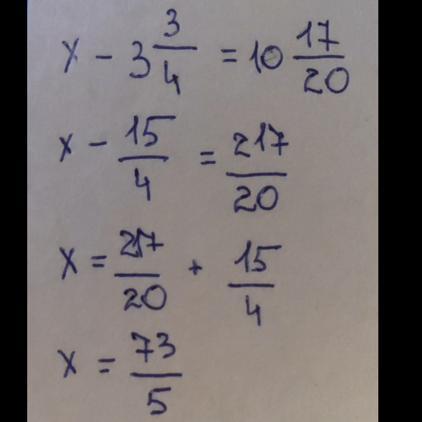 x - 3 3/4 = 10 17/20
x - 15/4 = 217/20
x = 217/20 + 15/4
x = 73/5